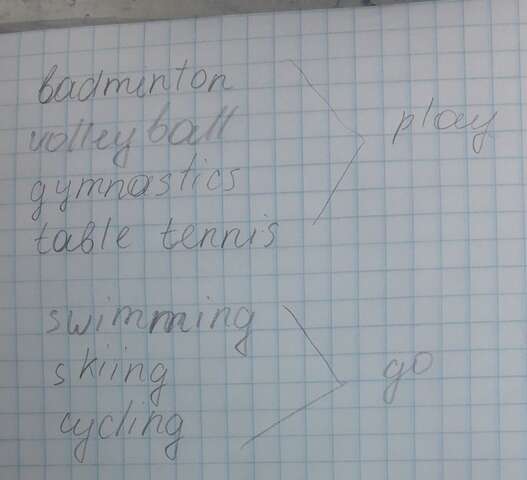 badminton
volleyball
play
gymnastics
table tennis
swimming
skiing
go
cycling